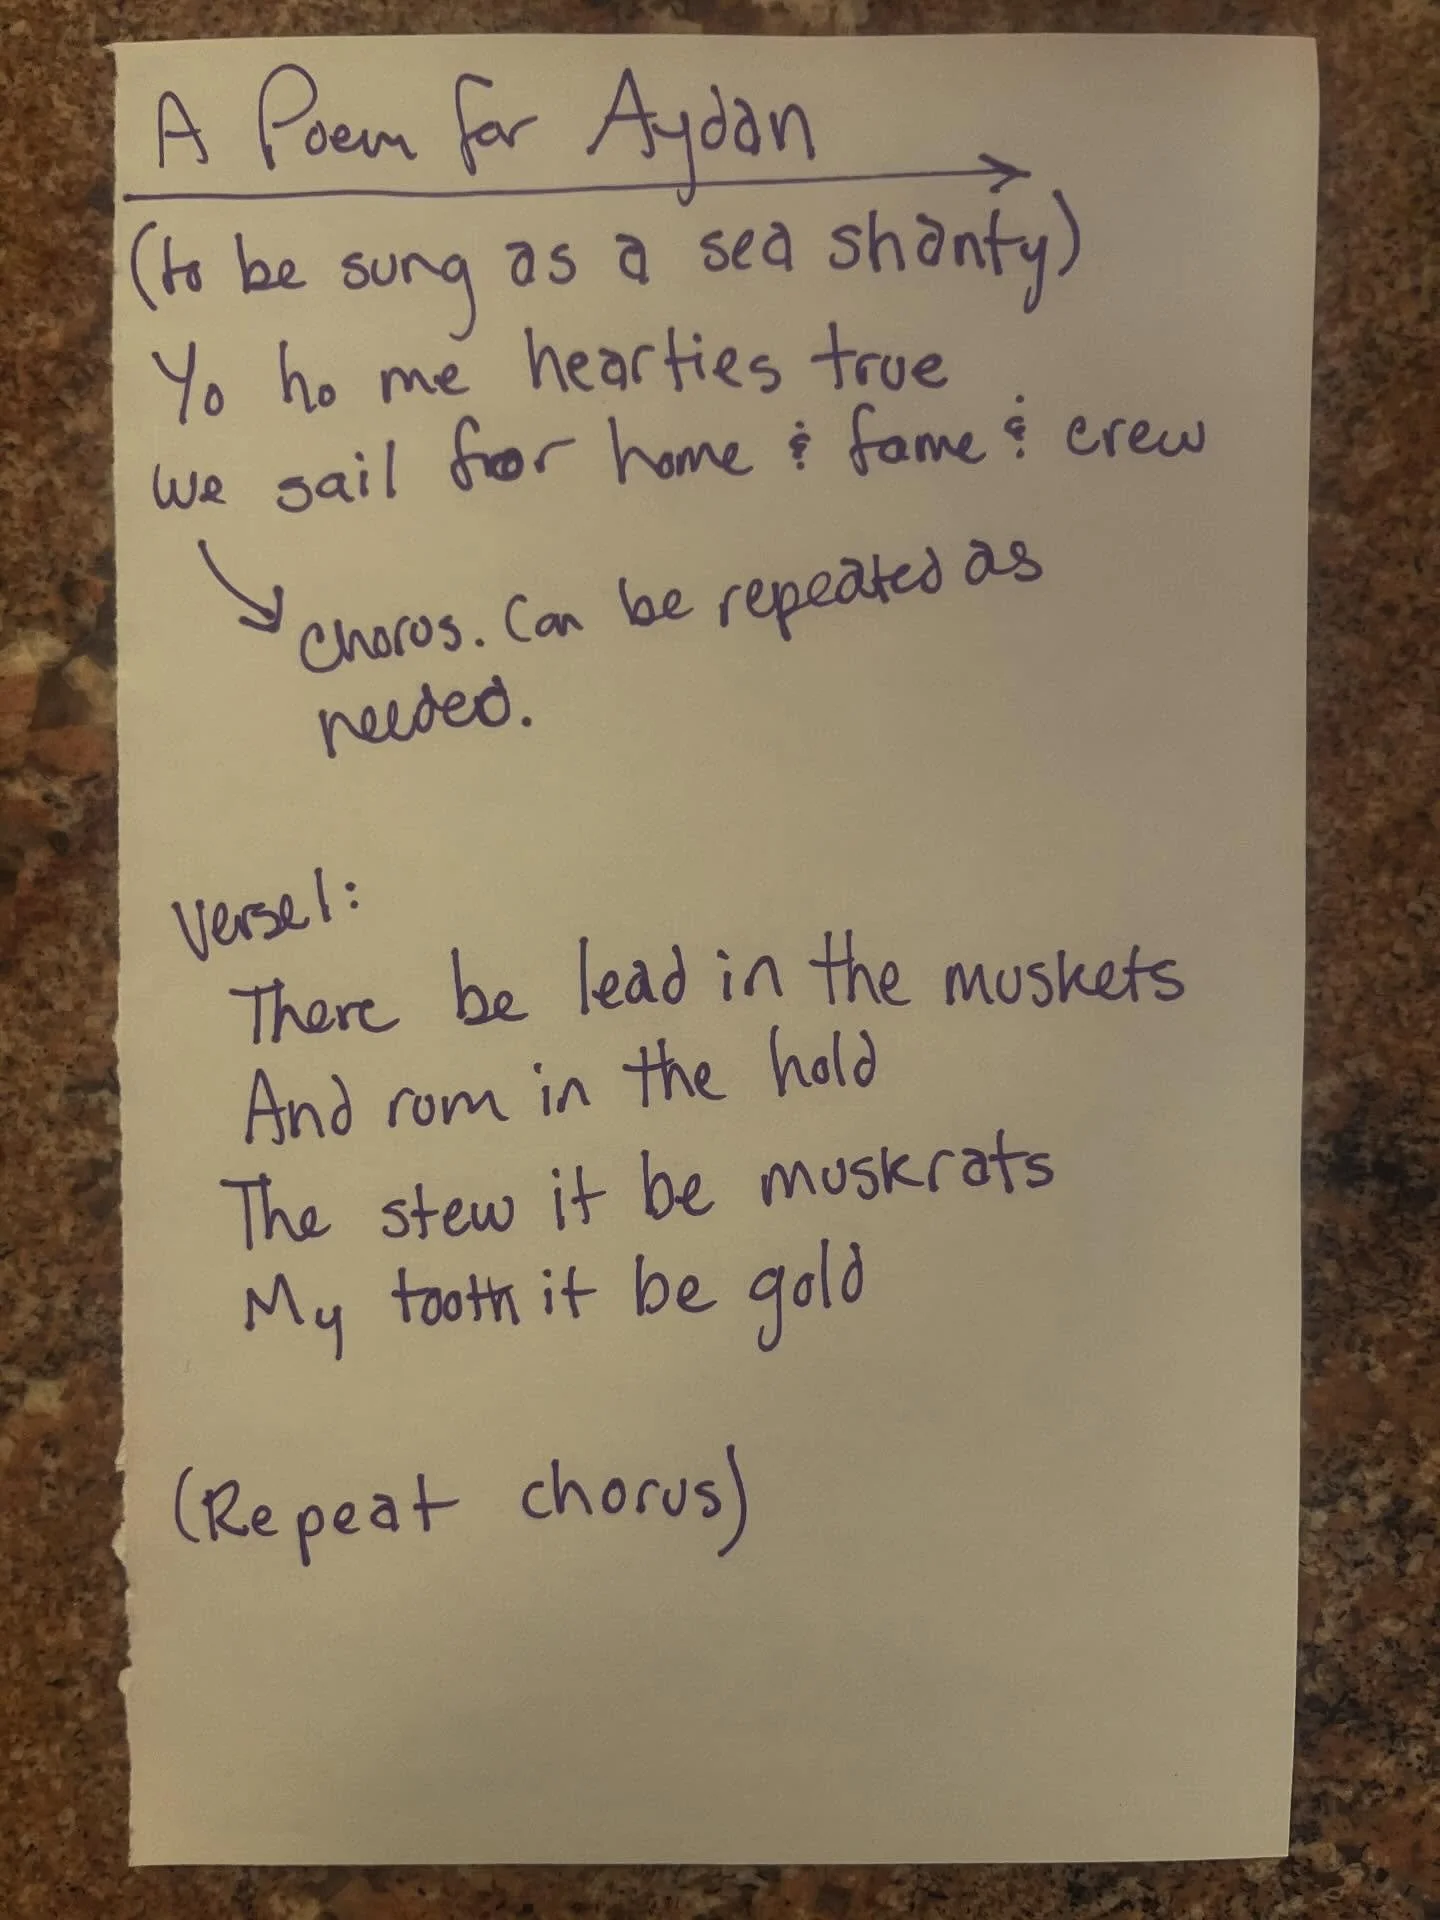 A Poem for Aydan
(to be sung as a sea shanty)
Yo ho me hearties true
We sail for home & fame & crew
Chorus. Can be repeated as
needed.
Verse 1:
There be lead in the muskets
And rum in the hold
The stew it be muskrats
My tooth it be gold
(Repeat chorus)